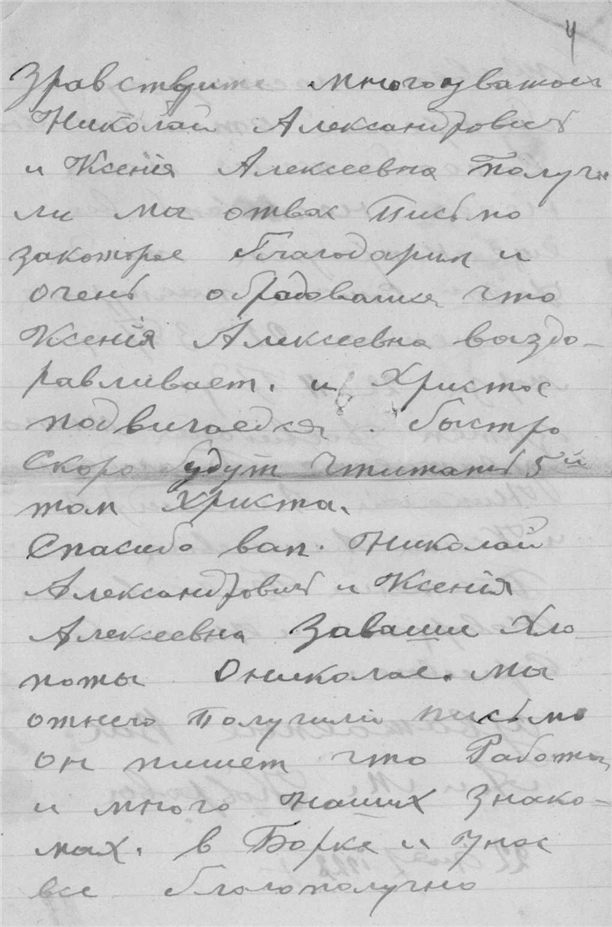 4
Здравствуите многоуважаем
Николай Александрович
и Ксенія Алексеевна Получи
ли мы отвас Письмо
закоторое благодарим и
очень обрадовались что
Ксенія Алексеевна выздо-
равливает. и Христос
подвигается. быстро
скоро будут читать 5й
том Христа.
Спасибо вам. Николай
Александрович и Ксенія
Алексеевна Заваши Хло
поты Ониколае. мы
отнего Получили письмо
он пишет что Работы
и много наших знако-
мых. в Борке и Унас
все благополучно